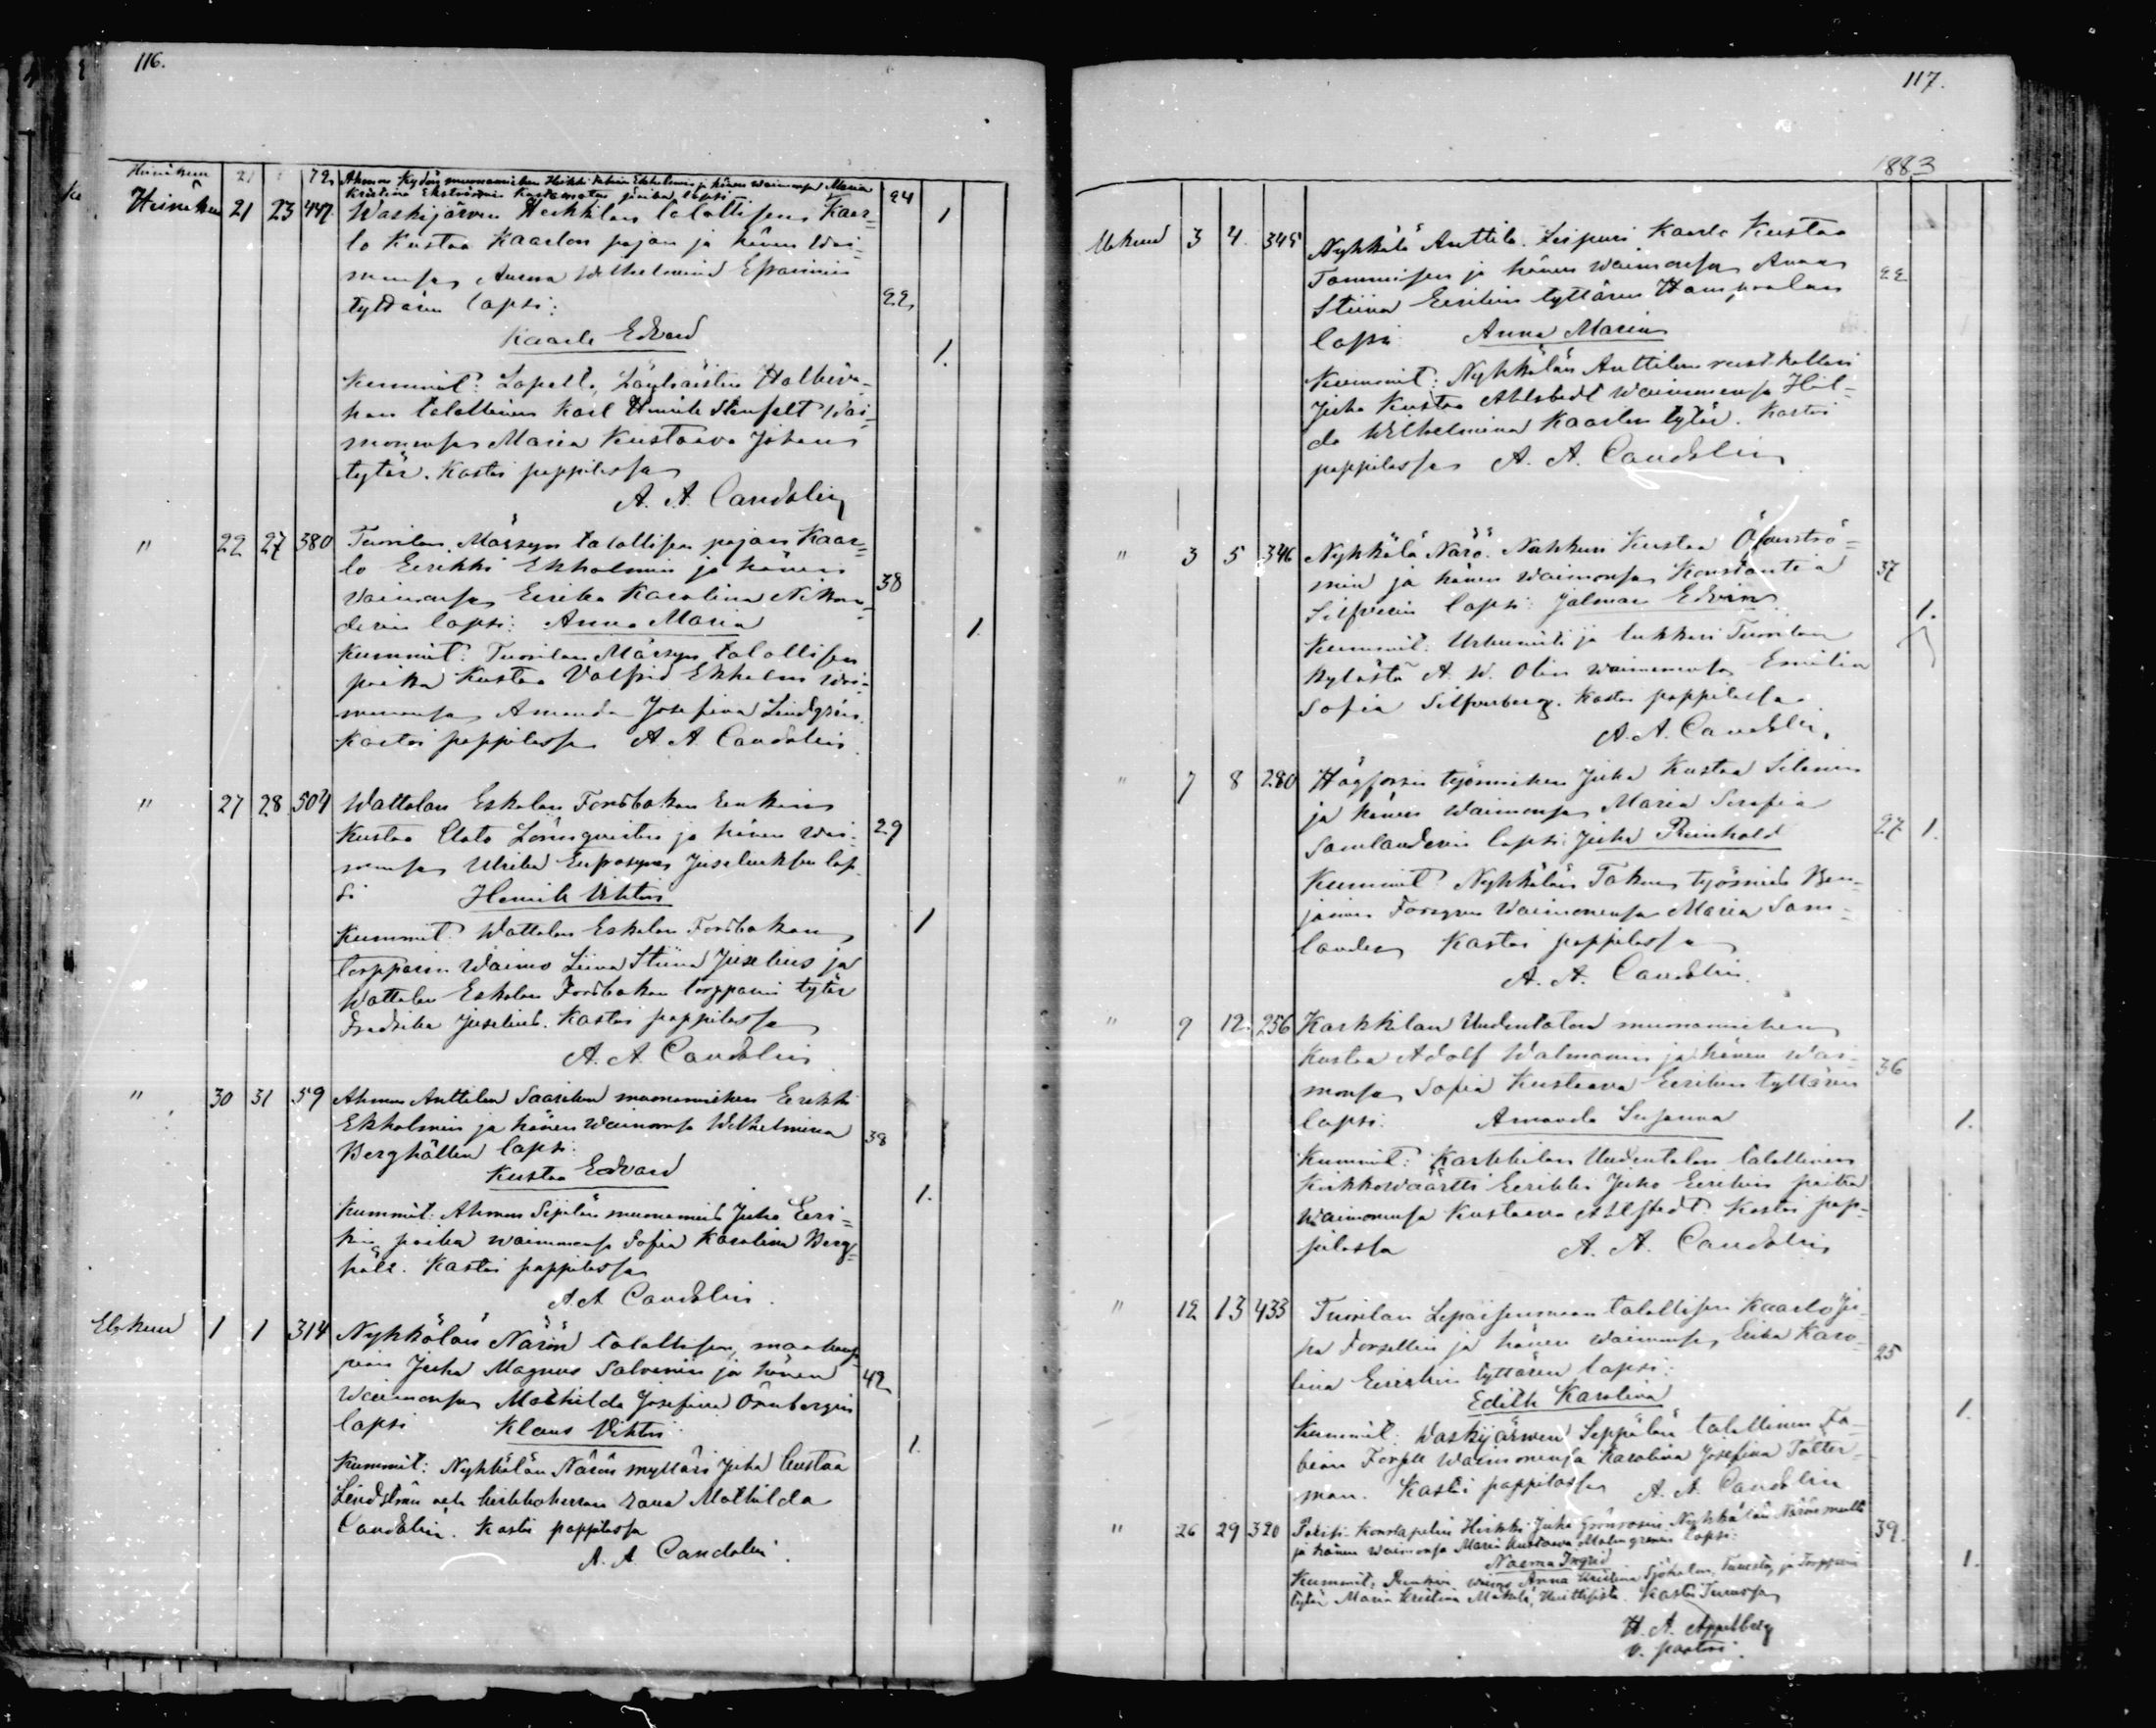 116.
Heinäkuu 21 72 Ahmon Kydön muonamiehen Heikki Ekholmin ja hänen waimonsa Maria
Kristina Ekströmin Kastamaton poika lapsi 24
Heinäkuu 21 23 447 Waskijärven Heikkilän talollisen Kaar= 1
lo Kustaa Kaarlon pojan ja hänen wai=
monsa Anna Wilhelmina Efraimin
tyttären lapsi: 22
Kaarle Edvard
1.
Kummit: Hallivahan talollinen Karl Henrik Stenfelt wai=
monensa Maria Kustaava Johans
tytär. Kastoi pappilassa
A. A. Candolin
" 22 27 380 Tuorilan Märsyn talollisen pojan Kaar=
lo Eerikki Ekholmin ja hänen
waimonsa Eerika Karolina Nikan= 38
derin lapsi: Anna Maria 1.
Kummit: Tuorilan Märsyn talollisen
poika Kustaa Valfrid Ekholm wai=
monensa Amanda Josefina Lindgrén.
Kastoi pappilassa A. A. Candolin
" 27 28 504 Wattolan Eskolan Fordbakan
Kustaa Lönnqvistin ja hänen wai= 29
monsa Ulrika Juseliuksen lap
si Henrik Viktor
Kummit: Wattolan Eskolan Fordbakan 1
torpparin waimo Liina Stiina Juselius ja
Wattolan Eskolan Fordbakan torpparin tytär
Fredrika Juselius. Kastoi pappilassa
A. A. Candolin
" 30 31 59 Ahmon Anttilan Saarikon muonamiehen Eerikki
Ekholmin ja hänen waimonsa Wilhelmina 38
Berghällin lapsi:
Kustaa Edvard
1.
Kummit: Ahmon Sipilän muonamies Juha Eeri=
kin poika waimonensa Sofia Karolina Berg=
häll. Kastoi pappilassa
A. A. Candolin.
Elokuu 1 1 314 Nyhkälän Närön talollisen,
Juha Magnus Salvenin ja hänen 42
waimonsa Mathilda Josefina Örnbergin
lapsi Klaus Viktor
1.
Kummit: Nyhkälän Närön mylläri Juha Kustaa
Lindström sekä kirkkoherran rova Mathilda
Candolin. Kastoi pappilassa
A. A. Candolin.
117.
1883
Elokuu 3 4. 345 Nyhkälä Anttila. Leipuri Kaarle Kustaa
Tommisen ja hänen waimonsa Anna 22
Stiina Eerikin tyttären Hampaalan
lapsi Anna Maria
Kummit: Nyhkälän Anttilan rusthollari
Juha Kustaa Ahlstedt waimonensa Hil=
da Wilhelmina Kaarlen tytär. Kastoi
pappilassa A. A. Candolin
" 3 5 346 Nyhkälä Närö. Nahkuri Kustaa Öfverströ=
min ja hänen waimonsa Konstantia 37
Silfverin lapsi: Jalmar Edvin 1.
Kummit: Urkuniekka ja lukkari Tuorilan
kylästä A. W. Olin waimonensa Emilia
Sofia Silfverberg. Kastoi pappilassa
A. A. Candolin.
" 7 8 280 Högforsin työmiehen Juha Kustaa Silenin
ja hänen waimonsa Maria Serafia
Samlanderin lapsi: Juha Reinhold 27 1.
Kummit: Nyhkälän Takan työmies Ben=
jamin Forsgren waimonensa Maria Sam=
lander Kastoi pappilassa
A. A. Candolin.
" 9 12. 256 Karkkilan Uudentalon muonamiehen
Kustaa Adolf Walmanin ja hänen wai=
monsa Sofia Kustaava Eerikin tyttären 36
lapsi. Amanda Susanna 1.
Kummit: Karkkilan Uudentalon talollinen
Kirkkowäärtti Eerikki Juho Eerikin poika
waimonensa Kustaava Ahlstedt. Kastoi pap=
pilassa A. A. Candolin
" 12 13 433 Tuorilan talollisen Kaarlo Ju=
ha Forsellin ja hänen waimonsa Erika Karo= 25
lina Eerikin tyttären lapsi:
Edith Karolina 1.
Kummit: Waskijärwen Seppälän talollinen Fa=
bian Forsell waimonensa Karolina Josefina Tötter=
man. Kastoi pappilassa A. A. Candolin
" 26 29 320 Poliisi-Konstapelin Heikki Juha Grönroosin Nyhkälän Närön maalta 39.
ja hänen waimonsa Maria Kustaava Malmgrenin lapsi:
Naema Ingrid 1.
Kummit: waimo Anna Kristina Sjöholm, Turusta, ja Torpparin
tytär Maria Kristina Mäkelä, Huittisista. Kastoi Turussa
H. A. Appelberg
v. pastori.